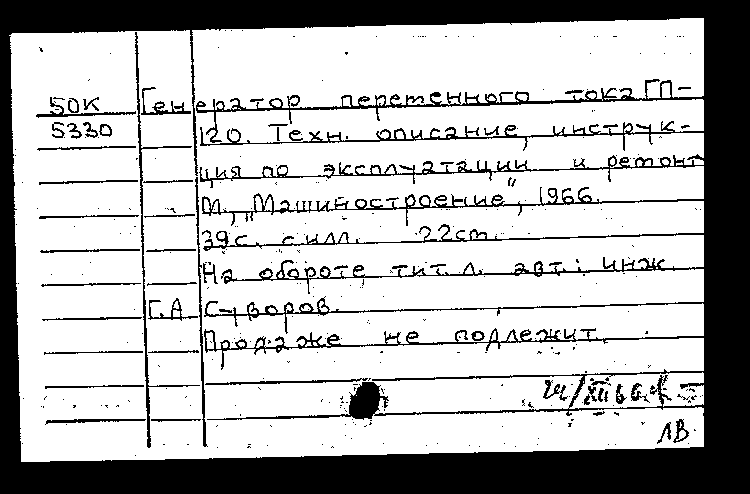 50К Генератор переменного тока ГП-
5330 120. Техн. описание, инструк-
ция по эксплуатации и ремонт
М., „Машиностроение“, 1966.
39с. с илл. 22cm.
На обороте тит. л. авт.: инж.
Г.А Суворов.
Продаже не подлежит.
ЛВ